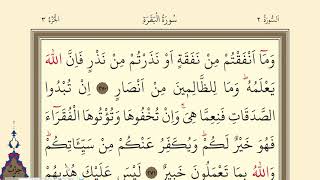 اَلسُّورَةُ ٢ سُورَةُ الْبَقَرَةِ اَلْجُزْءُ ٣
وَمَٓا اَنْفَقْتُمْ مِنْ نَفَقَةٍ اَوْ نَذَرْتُمْ مِنْ نَذْرٍ فَاِنَّ اللّٰهَ
يَعْلَمُهُۜ وَمَا لِلظَّالِمٖينَ مِنْ اَنْصَارٍ ﴿٢٧٠﴾ اِنْ تُبْدُوا
الصَّدَقَاتِ فَنِعِمَّا هِيَۚ وَاِنْ تُخْفُوهَا وَتُؤْتُوهَا الْفُقَرَٓاءَ
فَهُوَ خَيْرٌ لَكُمْۜ وَيُكَفِّرُ عَنْكُمْ مِنْ سَيِّـَٔاتِكُمْۜ
وَاللّٰهُ بِمَا تَعْمَلُونَ خَبٖيرٌ ﴿٢٧١﴾ لَيْسَ عَلَيْكَ هُدٰيهُمْ